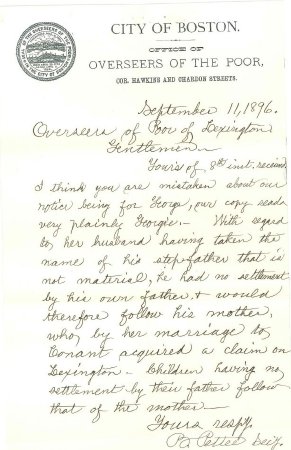 CITY OF BOSTON.
OFFICE OF
OVERSEERS OF THE POOR,
COR. HAWKINS AND CHARDON STREETS.
September 11, 1896.
Overseers of Poor of Lexington
Gentlemen—
Yours of 8th inst. received
I think you are mistaken about our
notice being for George, our copy reads
very plainly Georgie.— With regard
to her husband having taken the
name of his stepfather that is
not material, he had no settlement
by his own father & would
therefore follow his mother,
who by her marriage to
Conant acquired a claim on
Lexington— Children having no
settlement by their father follow
that of the mother—
Yours respy.
Pettee